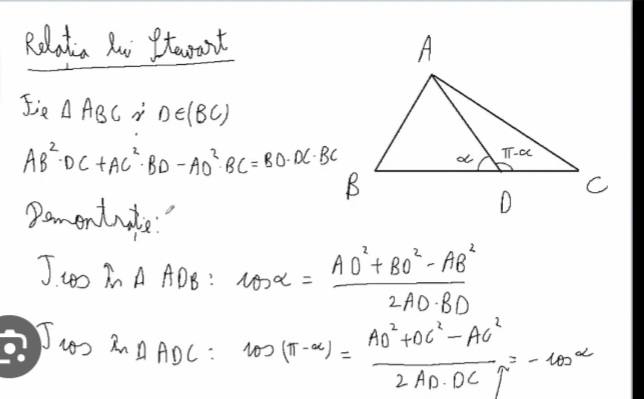 Relația lui Stewart
Fie Δ ABC și D∈(BC)
AB²·DC + AC²·BD − AD²·BC = BD·DC·BC
Demonstrație:
T.cos în Δ ADB: cosα = (AD² + BD² − AB²) / (2AD·BD)
T cos în Δ ADC: cos(π−α) = (AD² + DC² − AC²) / (2AD·DC) = − cosα
A
α π-α
B D C